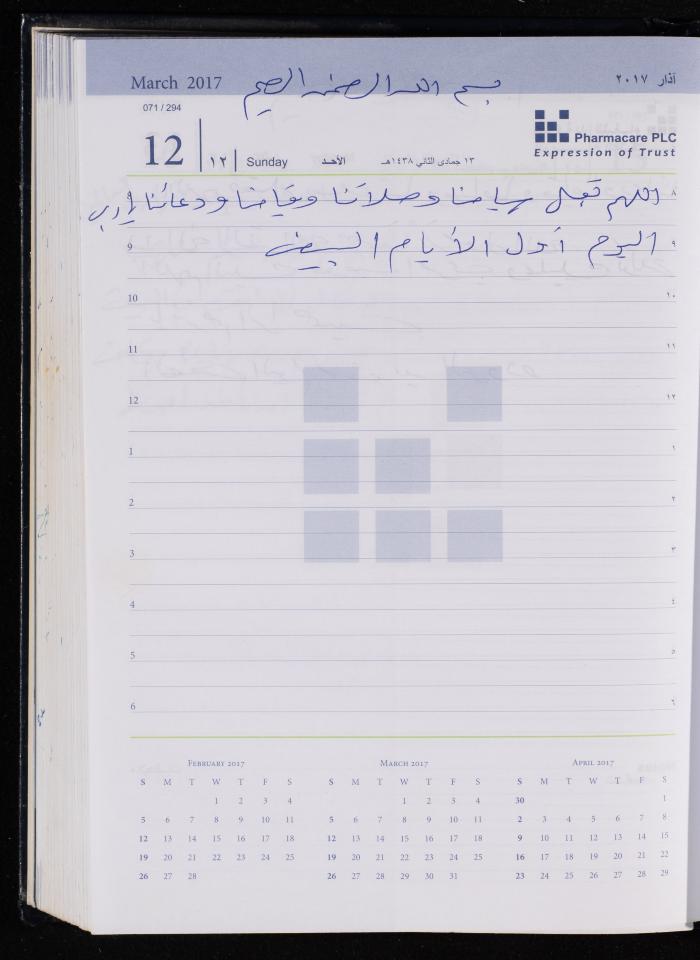 March 2017 بسم الله الرحمن الرحيم آذار ٢٠١٧
071 / 294
12 ١٢ Sunday الأحد ١٣ جمادى الثاني ١٤٣٨هـ
Pharmacare PLC
Expression of Trust
اللهم تقبل صيامنا وصلاتنا وقيامنا ودعائنا يا رب ٨
9 اليوم أول الأيام البيض ٩
10 ١٠
11 ١١
12 ١٢
1 ١
2 ٢
3 ٣
4 ٤
5 ٥
6 ٦
FEBRUARY 2017
S M T W T F S
1 2 3 4
5 6 7 8 9 10 11
12 13 14 15 16 17 18
19 20 21 22 23 24 25
26 27 28
MARCH 2017
S M T W T F S
1 2 3 4
5 6 7 8 9 10 11
12 13 14 15 16 17 18
19 20 21 22 23 24 25
26 27 28 29 30 31
APRIL 2017
S M T W T F S
30 1
2 3 4 5 6 7 8
9 10 11 12 13 14 15
16 17 18 19 20 21 22
23 24 25 26 27 28 29